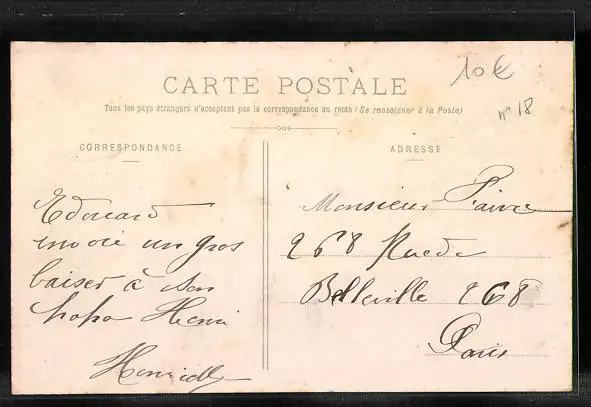 CARTE POSTALE
10€
Tous les pays étrangers n'acceptent pas la correspondance au recto (Se renseigner à la Poste)
n° 18
CORRESPONDANCE
ADRESSE
Edouard
envoie un gros
baiser à son
papa Henri
Monsieur Faivre
268 Rue de
Belleville 268
Paris